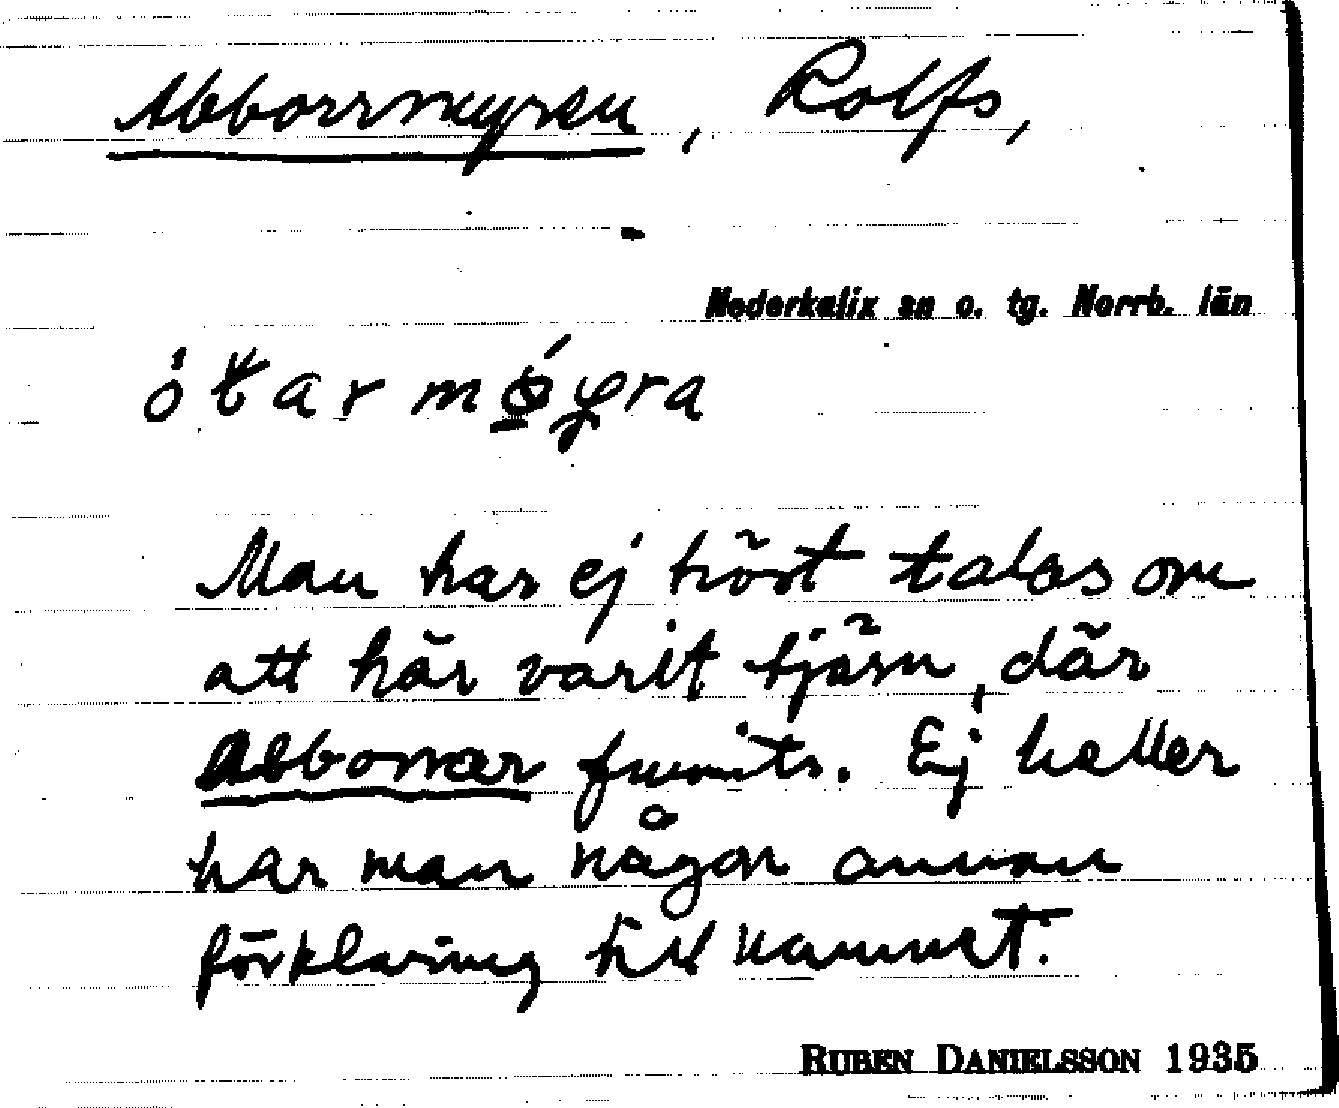 Abborrmyren, Rolfs,
Nederkalix sn o. tg. Norrb. län
Man har ej hört talas om
att här varit tjärn, där
Abborrar funnits. Ej heller
har man någon annan
förklaring till namnet.
RUBEN DANIELSSON 1935